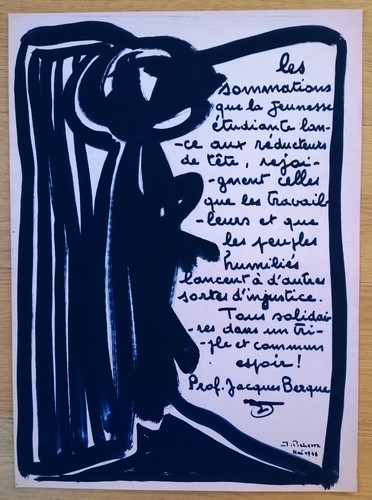 les
sommations
que la jeunesse
étudiante lan-
-ce aux réducteurs
de tête, rejoi-
-gnent celles
que les travail
-leurs et que
les peuples
humiliés
lancent à d'autres
sortes d'injustice.
Tous solidai-
-res dans un tri-
-ple et commun
espoir!
Prof. Jacques Berque
Mai 1968